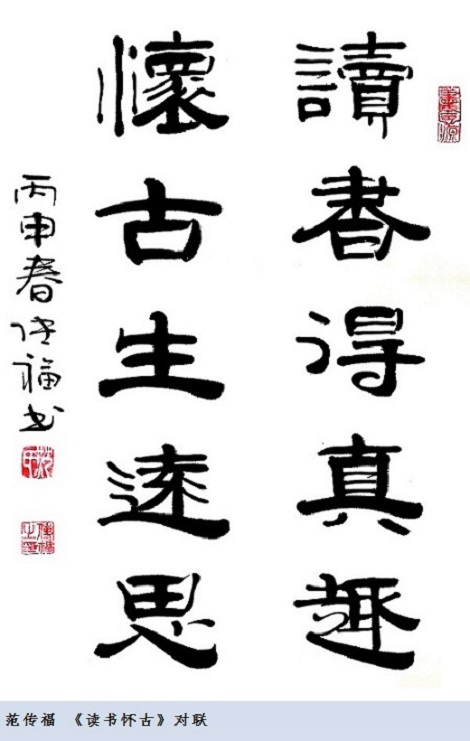 讀書得真趣
懷古生遠思
丙申春传福书
范传福 《读书怀古》对联